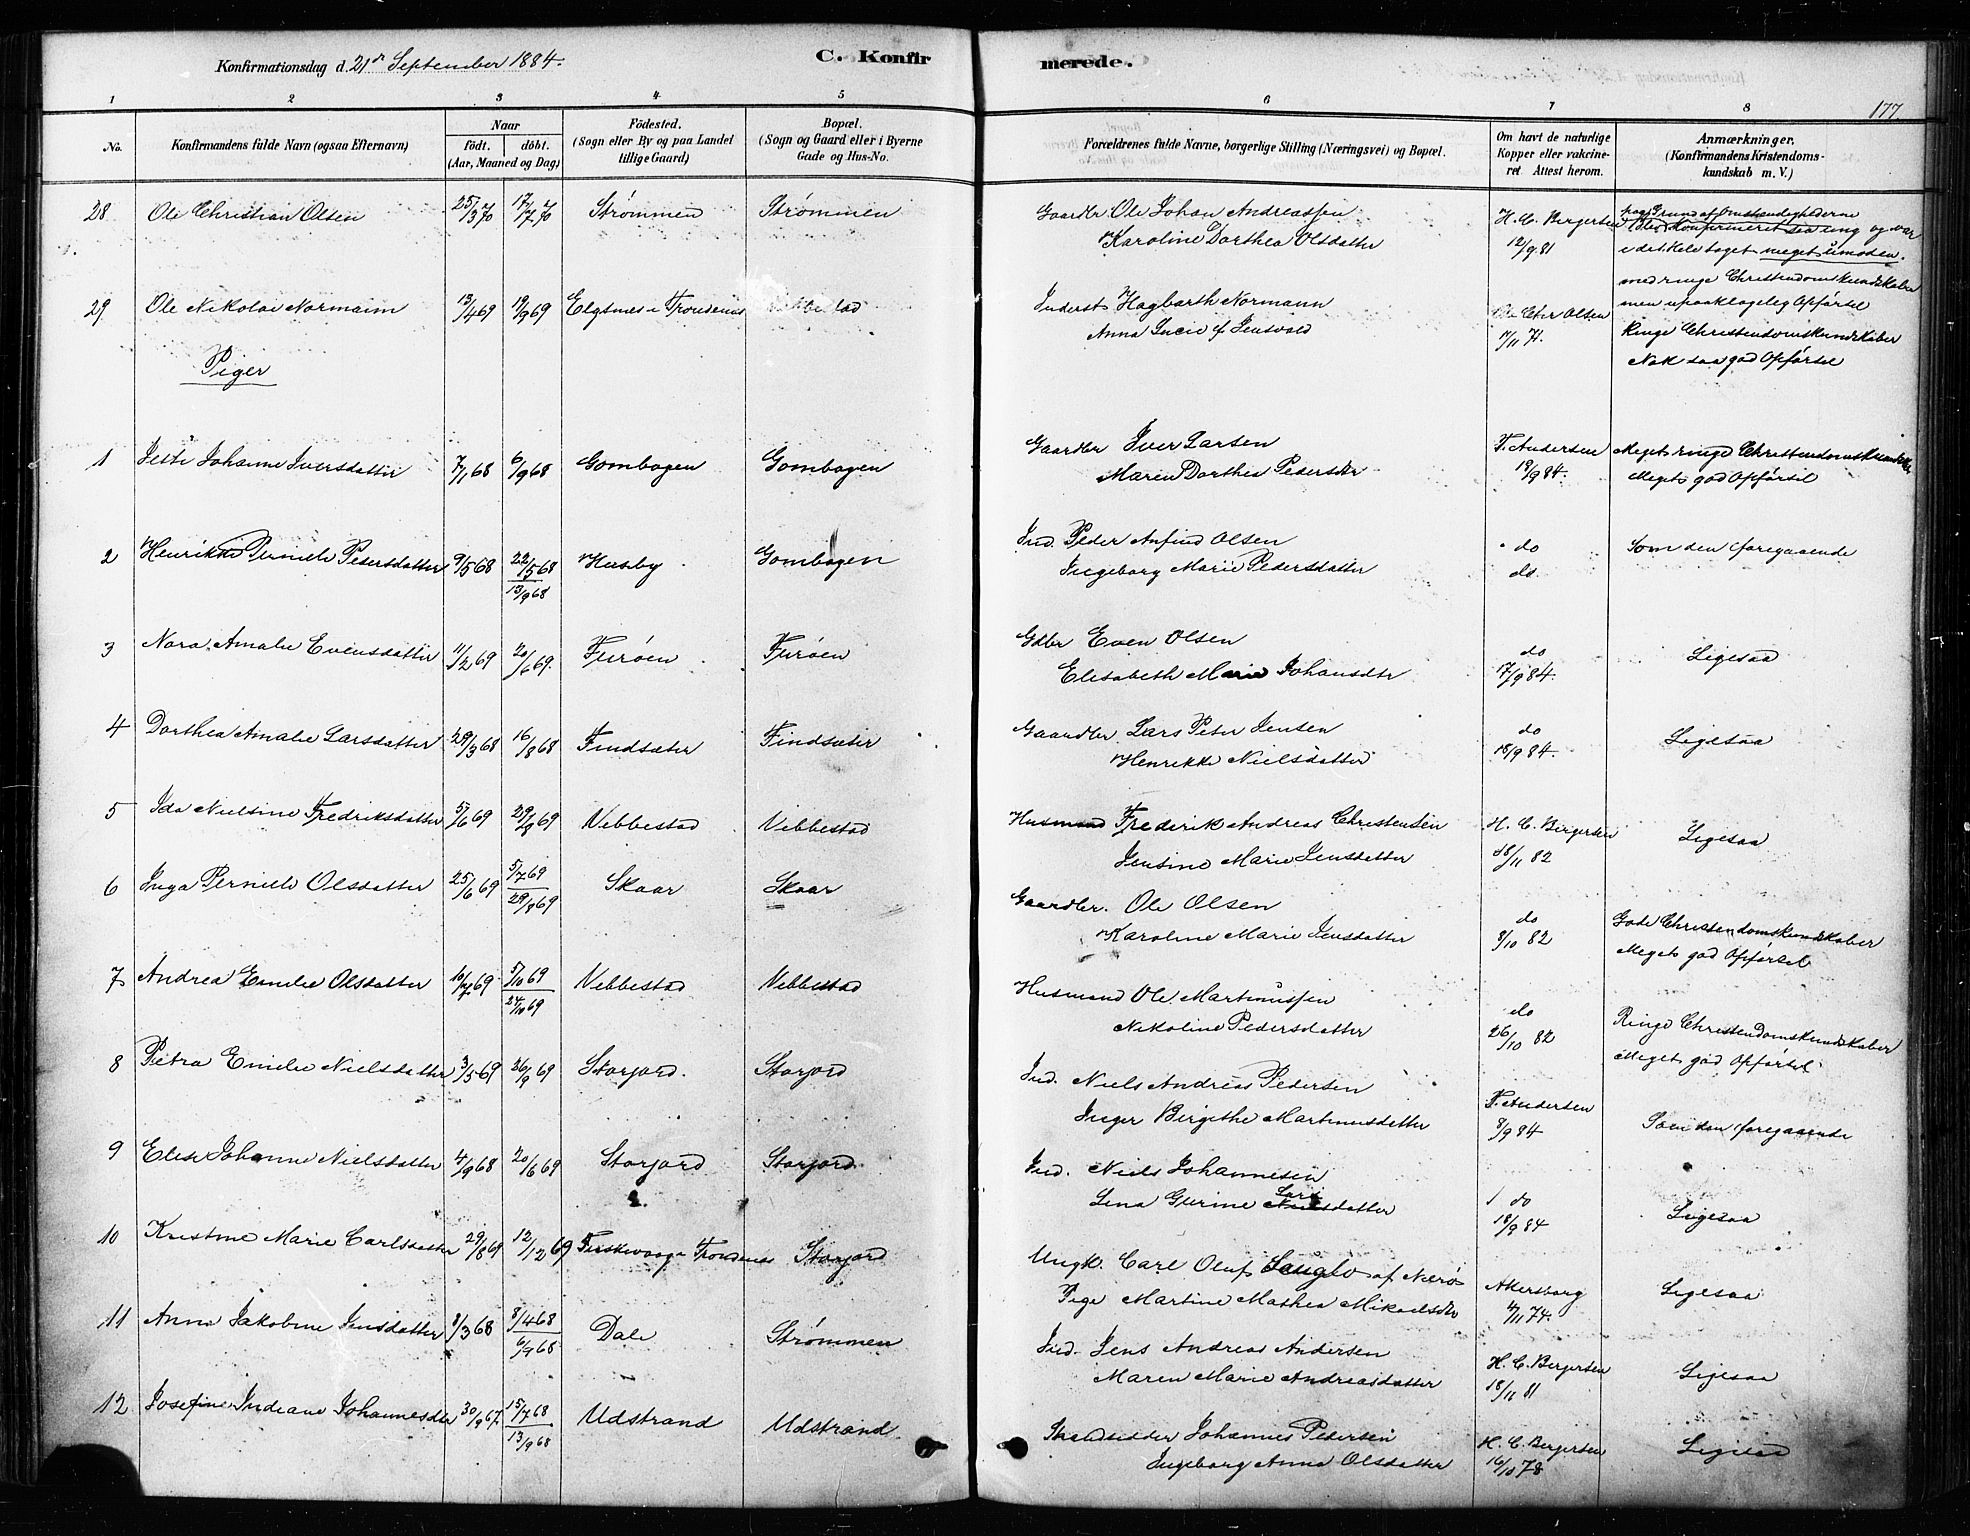 Konfirmationsdag d. 21de September 1884.
C. Konfirmerede.
177
1 2 3 4 5 6 7 8
No.
Konfirmandens fulde Navn (ogsaa Efternavn)
Naar
födt. döbt.
(Aar, Maaned og Dag)
Födested.
(Sogn eller By og paa Landet
tillige Gaard)
Bopæl.
(Sogn og Gaard eller i Byerne
Gade og Hus-No.
Forældrenes fulde Navne, borgerlige Stilling (Næringsvei) og Bopæl.
Om havt de naturlige
Kopper eller vakcine-
ret. Attest herom.
Anmærkninger.
(Konfirmandens Kristendoms-
kundskab m. V.)
28 Ole Christian Olsen 25/3 70 17/7 70 Strømmen Strømmen Gaardbr Ole Johan Andreassen H. C. Bergersen
Karoline Dorthea Olsdatter 12/9 81
paa Grund af Omstændighederne
blev Konfirmeret saa ung og var
i det Hele taget meget umoden.
med ringe Christendomskundskaber
men upaaklagelig Opførsel
29 Ole Nikolai Normann 13/4 69 19/9 69 Elgsnes i Trondenes Inderst Hagbarth Normann Ole Chr Olsen
Anna Lucie 7/11 71.
Ringe Christendomskundskaber
Nok saa god Opførsel
Piger
1 Johanne Iversdatter 7/1 68 6/9 68 Gombogen Gombogen Gaardbr Iver Larsen F. Andersen Meget ringe Christendomskundsk
Maren Dorthea Pedersdtr 18/9 84. Meget god Opførsel
2 Henrikke Pernille Pedersdatter 9/5 68 22/5 68 Husby Gombogen Ind. Peder Anfind Olsen do Som den foregaaende
13/9 68 Ingeborg Marie Pedersdatter do
3 Nora Amalie Evensdatter 11/2 69 20/6 69. Furøen Furøen Gdbr Even Olsen do Ligesaa
Elisabeth Marie Johansdtr 17/9 84.
4 Dorthea Amalie Larsdatter 29/3 68 16/8 68 Findsæter Findsæter Gaardbr Lars Peter Jensen do Ligesaa
Henrikke Nielsdatter 18/9 84.
5 Ida Nielsine Fredriksdatter 5/6 69 29/8 69 Vebbestad Vebbestad Husmand Frederik Andreas Christensen H. C. Bergersen Ligesaa
Jensine Marie Jensdatter 18/11 82
6 Inga Pernille Olsdatter 25/6 69 5/7 69 Skaar Skaar Gaardbr. Ole Olsen do Gode Christendomskundskaber
29/8 69 Karoline Marie Jensdatter 8/10 82 Meget god Opførsel
7 Andrea Emilie Olsdatter 10/7 69 5/10 69 Vebbestad Vebbestad Husmand Ole Martinussen do Ringe Christendomskundskaber
24/10 69 Nikoline Pedersdatter 26/10 82 Meget god Opførsel
8 Petra Emilie Nielsdatter 3/5 69 26/9 69 Storjord. Storjord Ind. Niels Andreas Pedersen F. Andersen Som den foregaaende
Inger Birgithe Martinusdatter 8/9 84
9 Elise Johanne Nielsdatter 4/9 68 20/6 69 Storjord Storjord. Ind. Niels Johannesen do Ligesaa
Lena Gurine Larsdatter 18/9 84
10 Kristine Marie Carlsdatter 29/8 69 12/12 69 Trondenes Storjord Ungk. Carl Oluf af Nærø Akersborg Ligesaa
Pige Martine Mathea Mikaelsdtr 4/11 74.
11 Anna Jakobine Jensdatter 8/3 68 8/4 68 Dale Strømmen Ind. Jens Andreas Andersen H. C. Bergersen Ligesaa
6/9 68 Maren Marie Andreasdatter 18/11 81
12 Josefine Indiane Johannesdtr 30/9 67 15/7 68 Udstrand Udstrand. Strandsidder Johannes Pedersen H. C. Bergersen Ligesaa
13/9 68 Ingeborg Anna Olsdatter 16/10 78